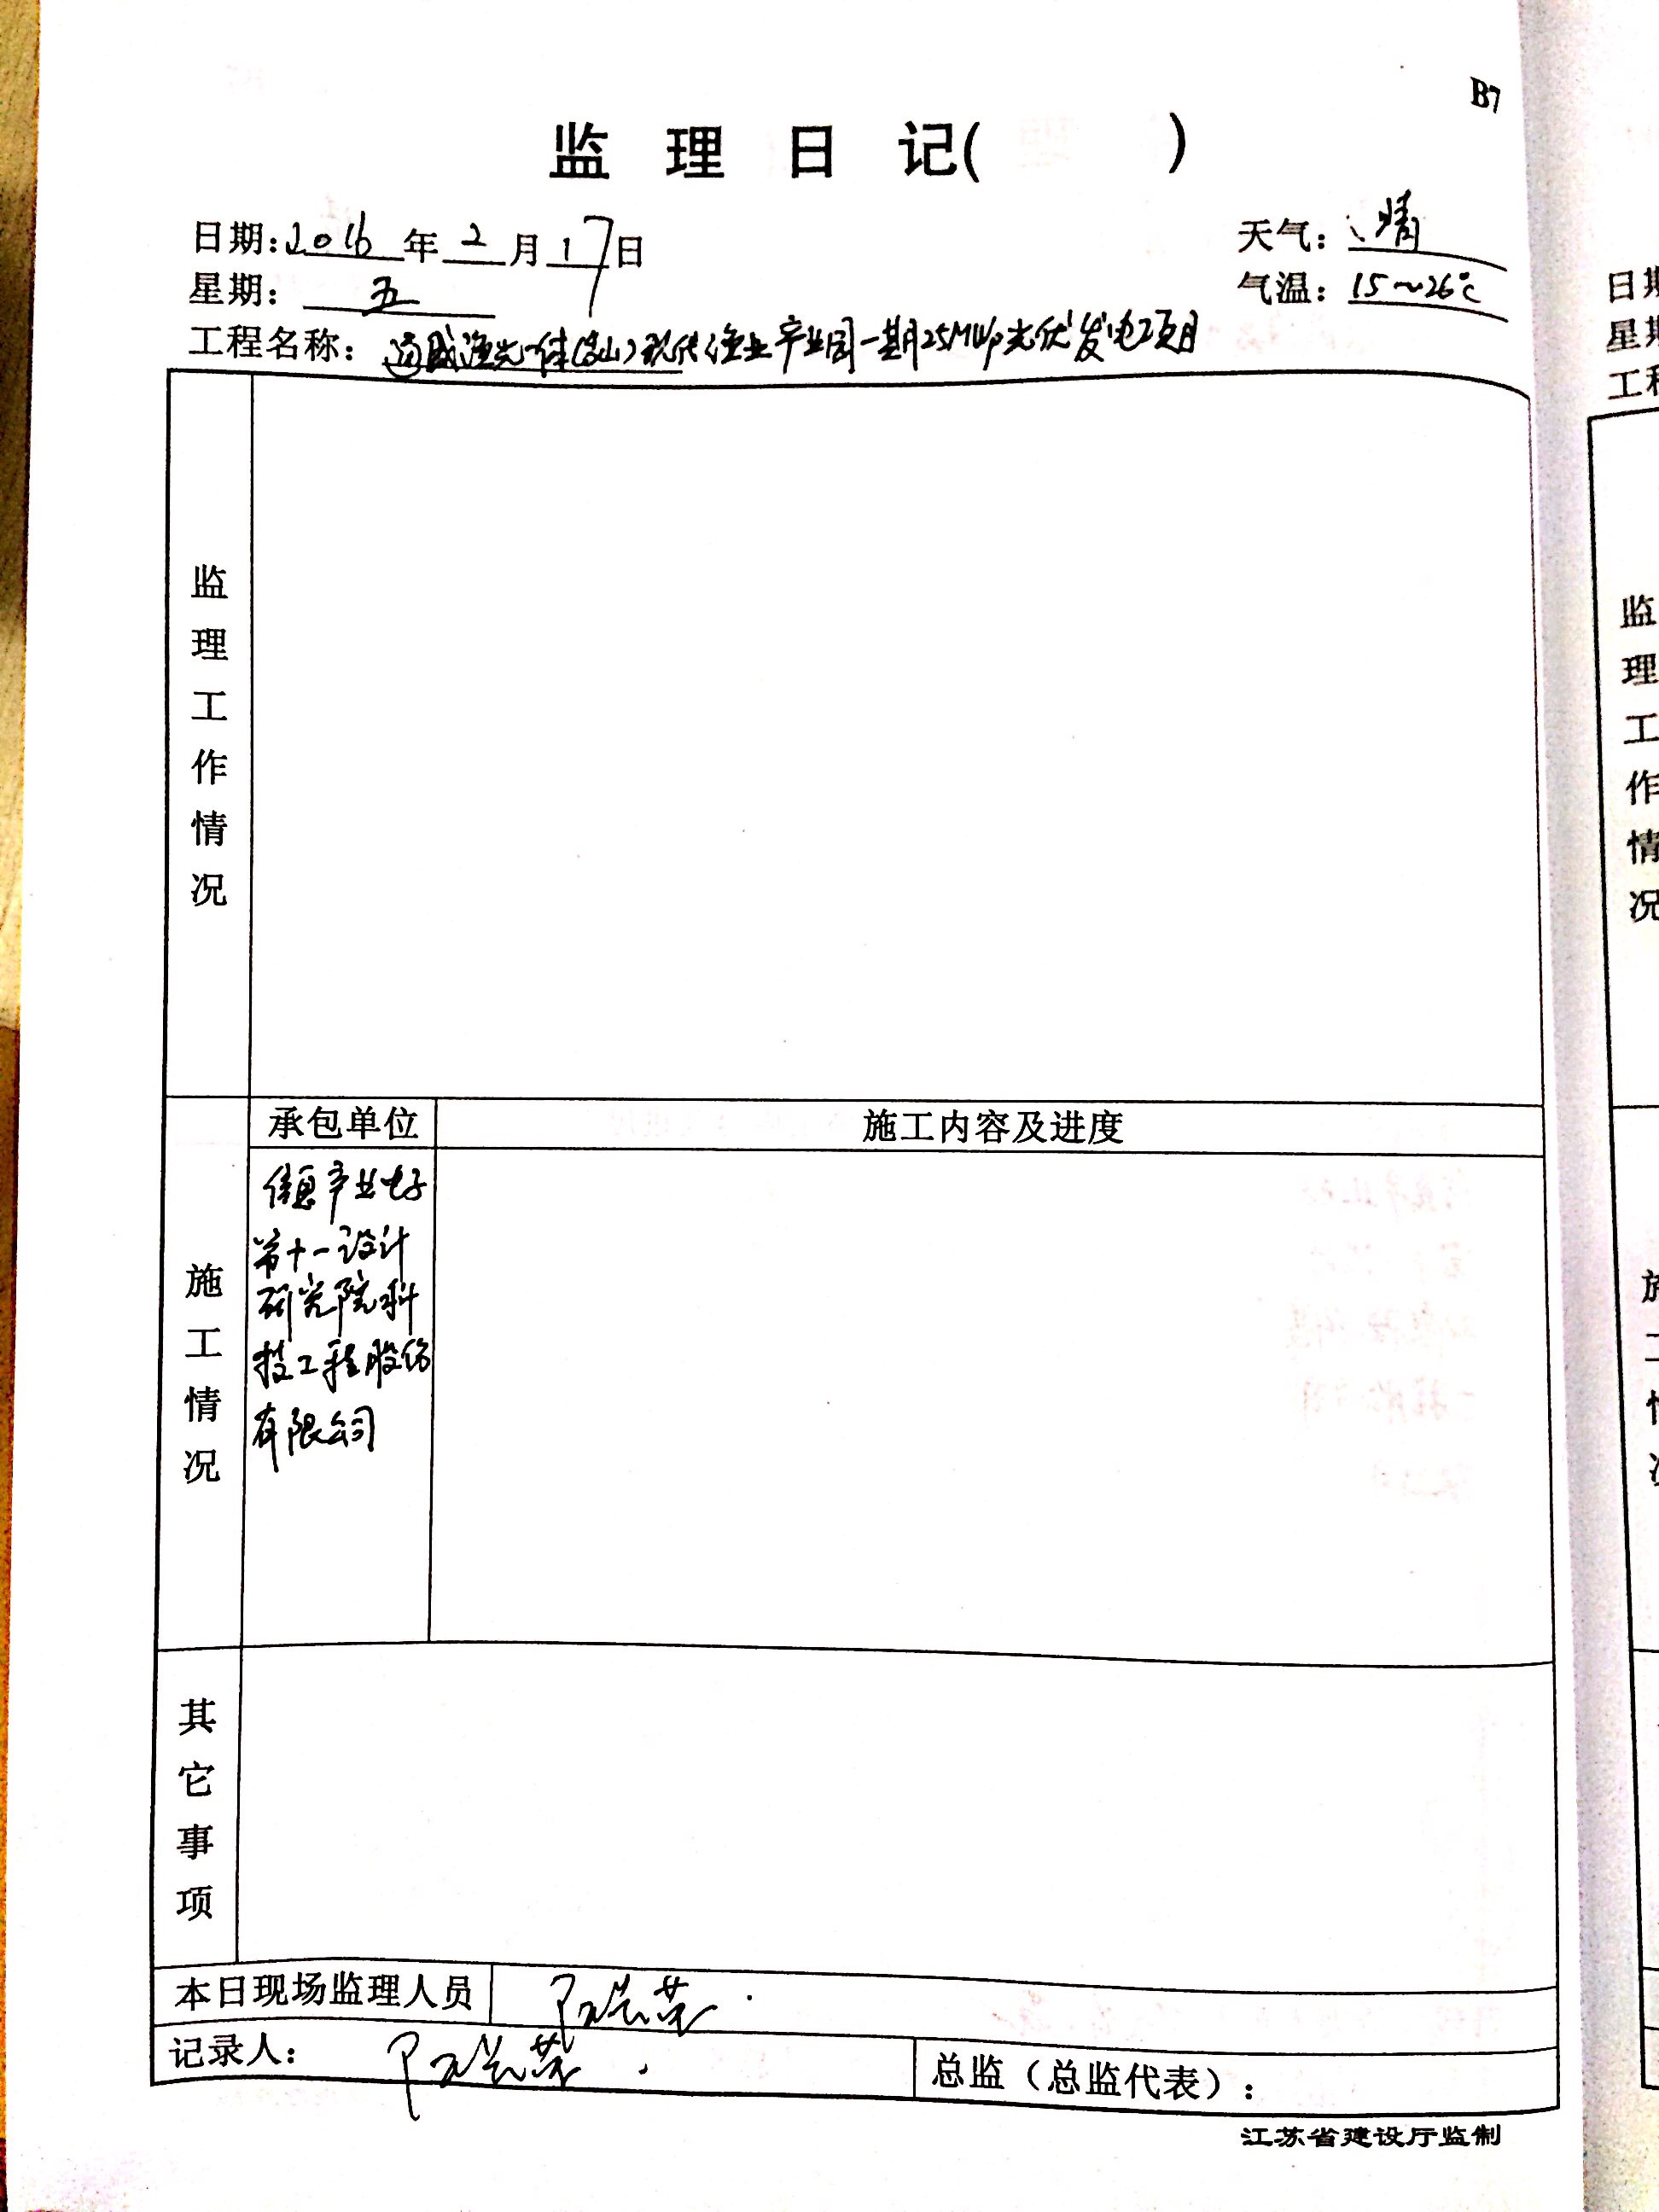 B7
监 理 日 记( )
日期:2016年2月17日
天气:晴
星期:五
气温:15~26℃
工程名称:通威渔光一体()现代渔业产业园一期25MWp光伏发电项目
监理工作情况
承包单位 施工内容及进度
施工情况
信息产业电子
第十一设计
研究院科
技工程股份
有限公司
其它事项
本日现场监理人员
记录人:
总监(总监代表):
江苏省建设厅监制
日期
星期
工程
监理工作情况
施工情况